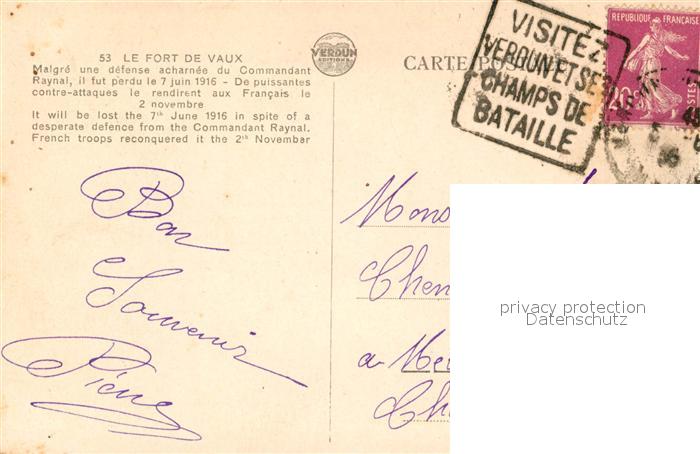 53 LE FORT DE VAUX
Malgré une défense acharnée du Commandant
Raynal, il fut perdu le 7 juin 1916 - De puissantes
contre-attaques le rendirent aux Français le
2 novembre
It will be lost the 7th June 1916 in spite of a
desperate defence from the Commandant Raynal.
French troops reconquered it the 2th November
VERDUN
EDITIONS
CARTE
VISITEZ
VERDUN ET SES
CHAMPS DE
BATAILLE
REPUBLIQUE FRANÇAISE
20c
POSTES
Bon
Souvenir
Pierre
Mons
Chen
a Me
Ch
privacy protection
Datenschutz